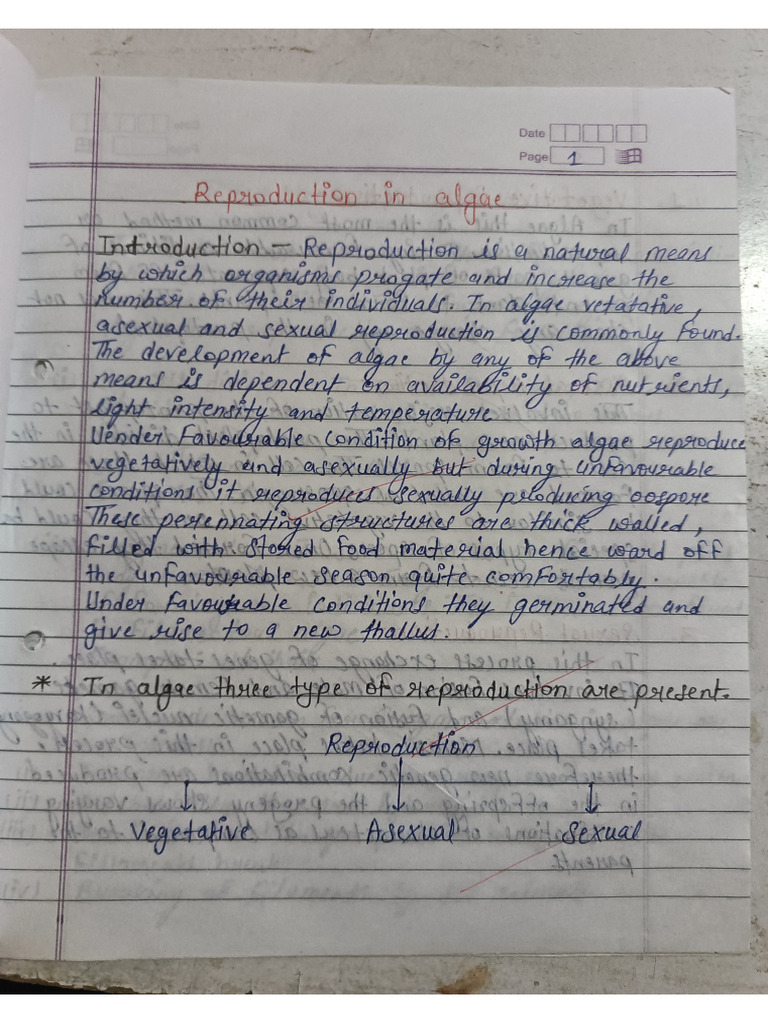 Date
Page 1
Reproduction in algae
Indroduction - Reproduction is a natural means
by which organisms progate and increase the
number of their individuals. In algae vetatative,
asexual and sexual reproduction is commonly found.
The development of algae by any of the above
means is dependent on availability of nutrients,
light intensity and temperature
Uender favourable condition of growth algae reproduce
vegetatively and asexually but during unfavourable
conditions it reproduces sexually producing oospore
These perennating structures are thick walled,
filled with stored food material hence ward off
the unfavourable season quite comfortably.
Under favourable conditions they germinated and
give rise to a new thallus.
* In algae three type of reproduction are present.
Reproduction
Vegetative Asexual Sexual